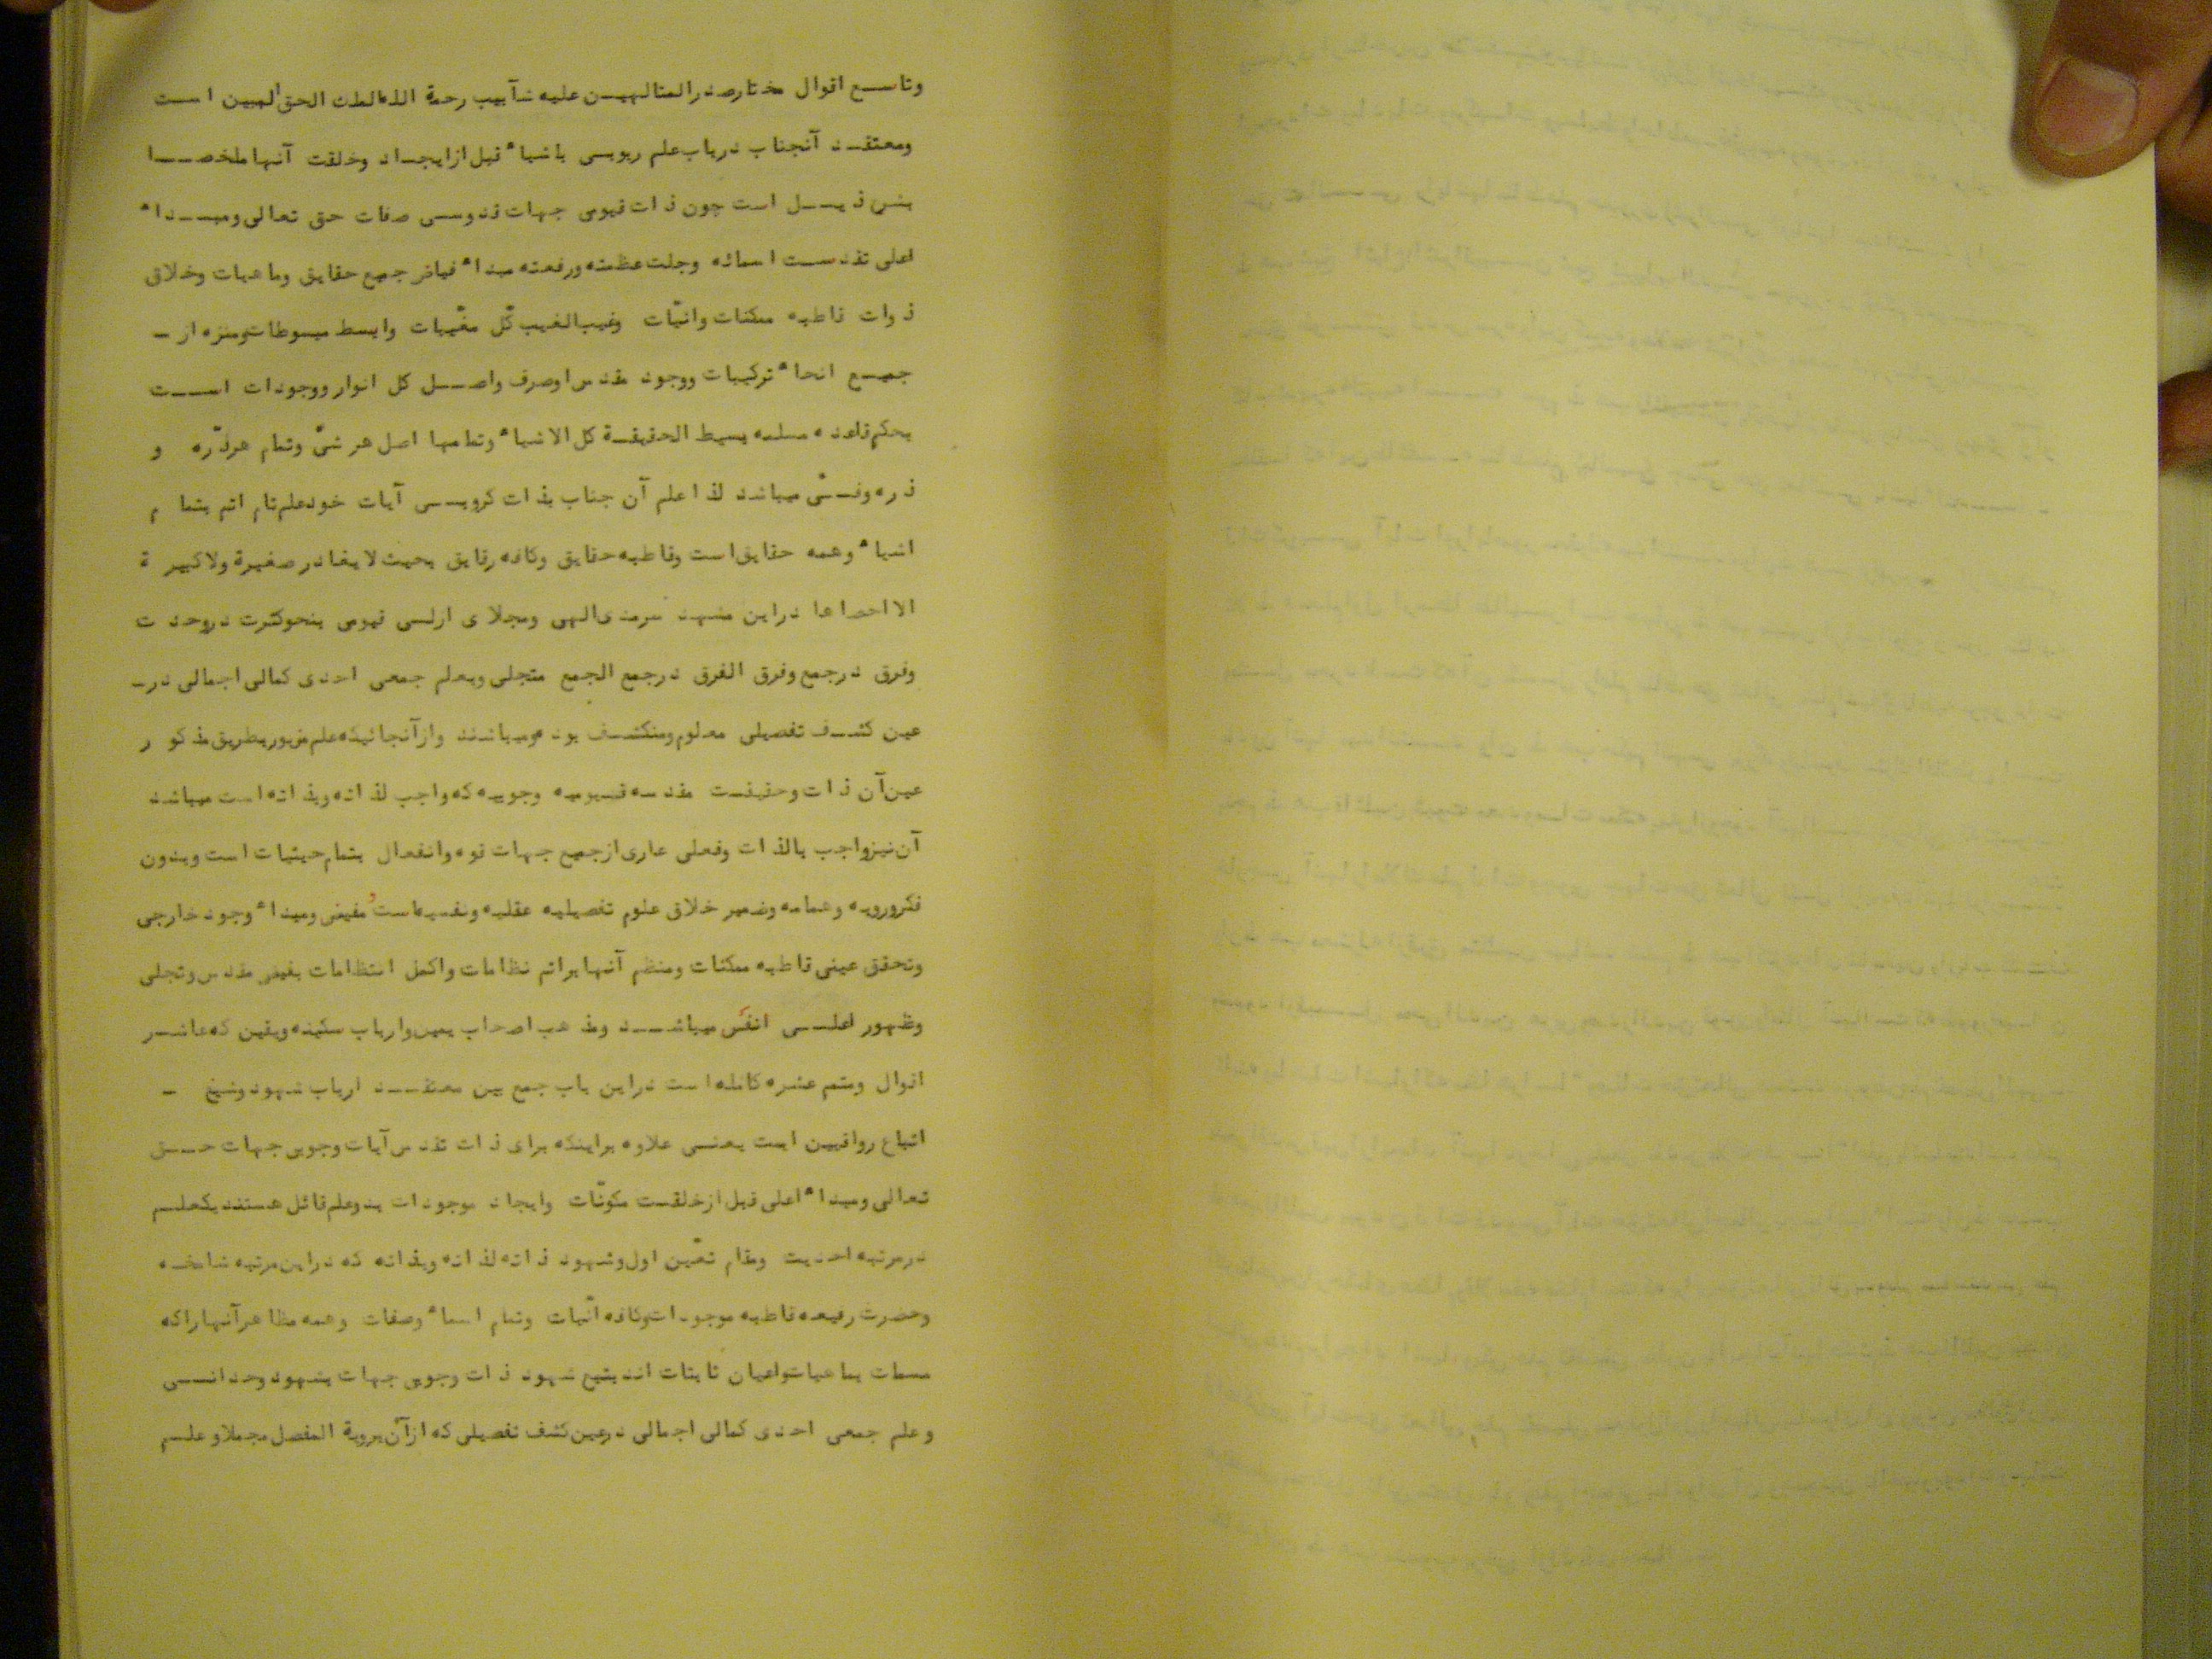 وتاسع اقوال مختار صدر المتالهین علیه شآبیب رحمة الله الملك الحق المبین است
ومعتقد آنجناب در باب علم ربوبی باشیاء قبل از ایجاد وخلقت آنها ملخصا
بدین ذیل است چون ذات قیومی جهات قدوسی صفات حق تعالی ومبداء
اعلی تقدست اسمائه وجلت عظمته ورفعته مبداء فیاض جمیع حقایق وماهیات وخلاق
ذوات قاطبه ممکنات وانیّات وغیب الغیب کّل مغّیبات وابسط مبسوطات ومنزه از -
جمیع انحاء ترکیبات ووجود مقدس او صرف واصل کل انوار ووجودات است
بحکم قاعده مسلمه بسیط الحقیقة کل الاشیاء وتمامها اصل هر شیّ وتمام هر ذّره و
ذره وفیّ میباشد لذا علم آن جناب بذات کروبی آیات خود علم تام اتم بتمام
اشیاء وهمه حقایق است وقاطبه حقایق وکافه رقایق بحیث لایغادر صغیرة ولا کبیرة
الا احصاها در این مشهد سرمدی الهی ومجلای ازلی قیومی بنحو کثرت در وحدت
وفرق در جمع وفرق الفرق در جمع الجمع متجلی وبعلم جمعی احدی کمالی اجمالی در -
عین کشف تفصیلی معلوم ومنکشف بوده ومیباشند واز آنجائیکه علم مزبور بطریق مذکور
عین آن ذات وحقیقت مقدسه قیومیه وجوبیه که واجب لذاته وبذاته است میباشد
آن نیز واجب بالذات وفعلی عاری از جمیع جهات قوه وانفعال بتمام حیثیات است وبدون
فکر ورویه وهمامه وضمیر خلاق علوم تفصیلیه عقلیه ونفسیه ماست ومفیض ومبداء وجود خارجی
وتحقق عینی قاطبه ممکنات ومنظم آنها براتم نظامات واکمل انتظامات بفیض مقدس وتجلی
وظهور اعلی انفَس میباشد ومذهب اصحاب یمین وارباب سکینه ویقین که عاشر
اقوال ومتمم عشره کامله است در این باب جمع بین معتقد ارباب شهود وشیخ -
اتباع رواقیین است یعنی علاوه براینکه برای ذات تقدس آیات وجوبی جهات حق
تعالی ومبداء اعلی قبل از خلقت مکوّنات وایجاد موجودات بدو علم قائل هستند یکعلم
در مرتبه احدیت ومقام تعّین اول وشهود ذاته لذاته وبذاته که در این مرتبه شامخه
وحضرت رفیعه قاطبه موجودات وکافه انّیات وتمام اسماء وصفات وهمه مظاهر آنها را که
مسمات بماهیات واعیان ثابتات اند بتبع شهود ذات وجوبی جهات بشهود وحدانی
وعلم جمعی احدی کمالی اجمالی در عین کشف تفصیلی که از آن برویة المفصل مجملا وعلم